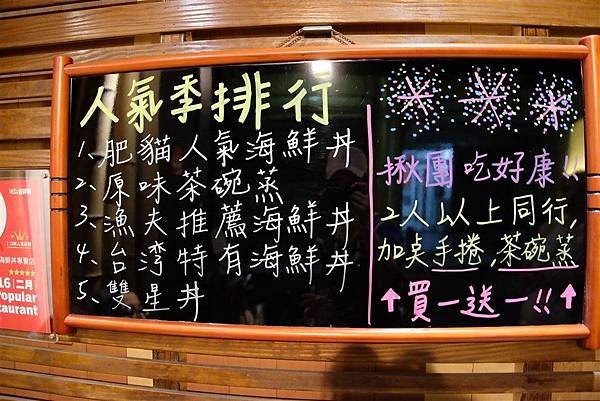 人氣季排行
1、肥貓人氣海鮮丼
2、原味茶碗蒸
3、漁夫推薦海鮮丼
4、台灣特有海鮮丼
5、雙星丼
揪團吃好康!!
2人以上同行,
加點手捲,茶碗蒸
↑買一送一!!↑
海鮮丼專賣店
★★★★★
16|二月
Popular
taurant